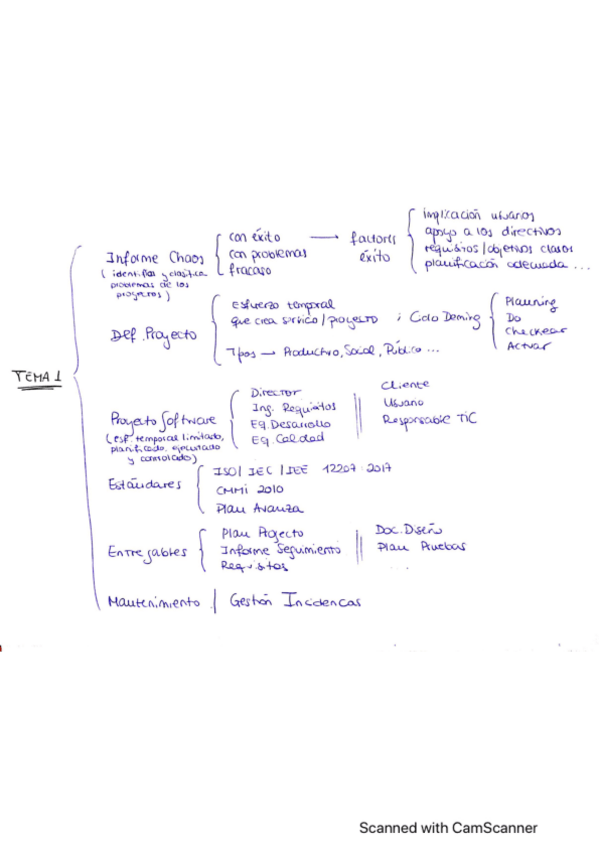 TEMA 1
Informe Chaos
(identifica y clasifica
problemas de los
proyectos)
con éxito → factores éxito
con problemas
fracaso
implicación usuarios
apoyo a los directivos
requisitos/objetivos claros
planificación adecuada ...
Def. Proyecto
esfuerzo temporal
que crea servicio/proyecto ; Ciclo Deming
Planning
Do
Checkear
Activar
Tipos → Productivo, Social, Público ...
Proyecto Software
(esf. temporal limitado,
planificado, ejecutado
y controlado)
Director
Ing. Requisitos
Eq. Desarrollo
Eq. Calidad
Cliente
Usuario
Responsable TIC
Estándares
ISO/ IEC / IEE 12207:2017
CMMi 2010
Plan Avanza
Entregables
Plan Proyecto
Informe Seguimiento
Requisitos
Doc. Diseño
Plan Pruebas
....
Mantenimiento | Gestión Incidencias
Scanned with CamScanner